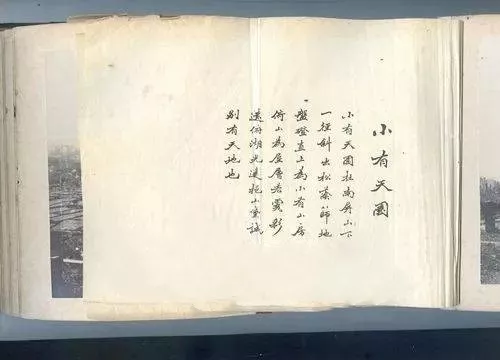 小有天園
小有天園在南屏山下
一徑斜出松蔭篩地
盤磴直上為小有山房
倚山為屋層岩
俯湖光挹山誠
別有天地也